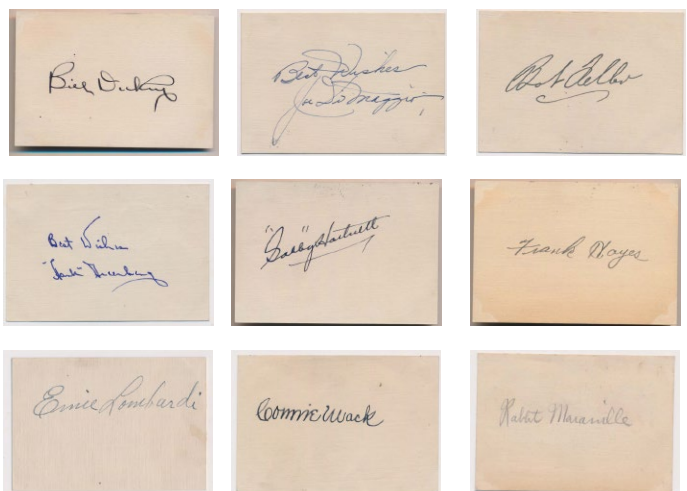 Bill Dickey
Best Wishes
Joe Di Maggio
Bob Feller
Best Wishes
"Hank" Greenberg
"Gabby" Hartnett
Frank Hayes
Ernie Lombardi
Connie Mack
Rabbit Maranville